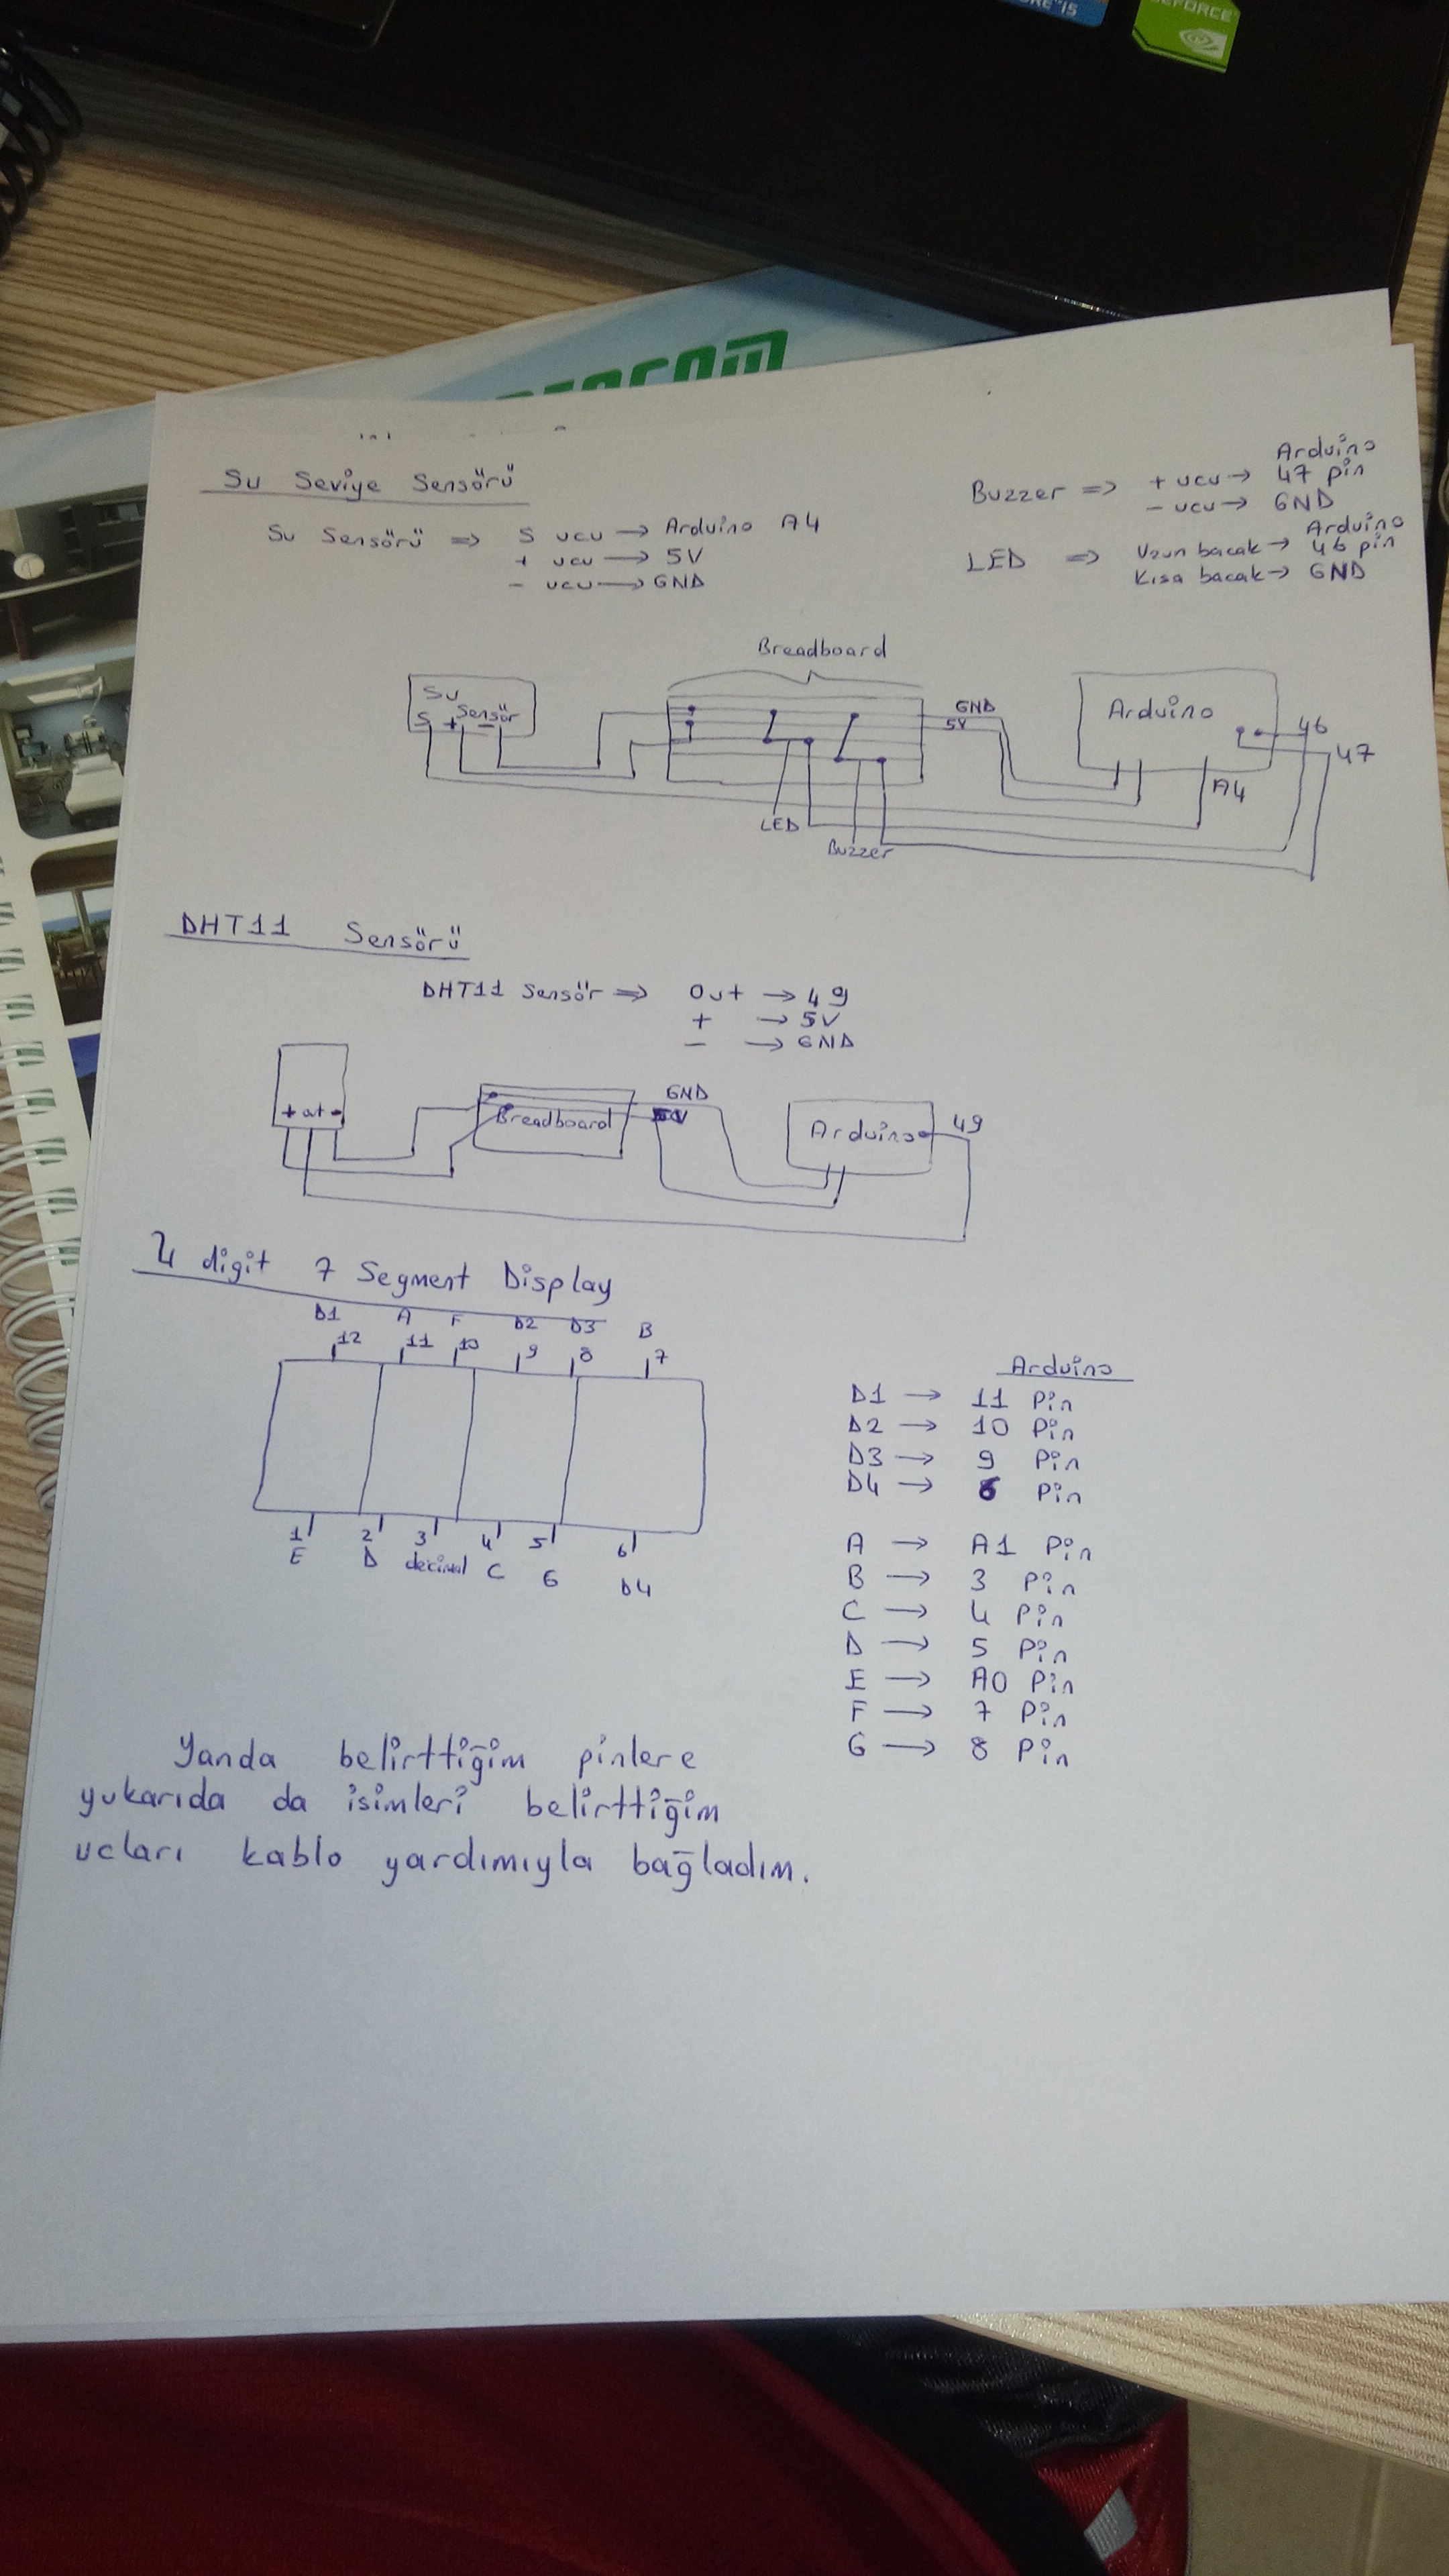 CORE i5
GEFORCE
Su Seviye Sensörü
Su Sensörü => S ucu → Arduino A4
+ ucu → 5V
- ucu → GND
Arduino
Buzzer => + ucu → 47 pin
- ucu → GND
Arduino
LED => Uzun bacak → 46 pin
Kısa bacak → GND
Breadboard
Su
Sensör
S + -
GND
5V
Arduino
46
47
A4
LED
Buzzer
DHT11 Sensörü
DHT11 Sensör => Out → 49
+ → 5V
- → GND
+ out -
Breadboard
GND
5V
Arduino
49
4 digit 7 Segment Display
D1 A F D2 D3 B
12 11 10 9 8 7
1 2 3 4 5 6
E D decimal C G D4
Arduino
D1 → 11 Pin
D2 → 10 Pin
D3 → 9 Pin
D4 → 6 Pin
A → A1 Pin
B → 3 Pin
C → 4 Pin
D → 5 Pin
E → A0 Pin
F → 7 Pin
G → 8 Pin
Yanda belirttiğim pinlere
yukarıda da isimleri belirttiğim
ucları kablo yardımıyla bağladım.